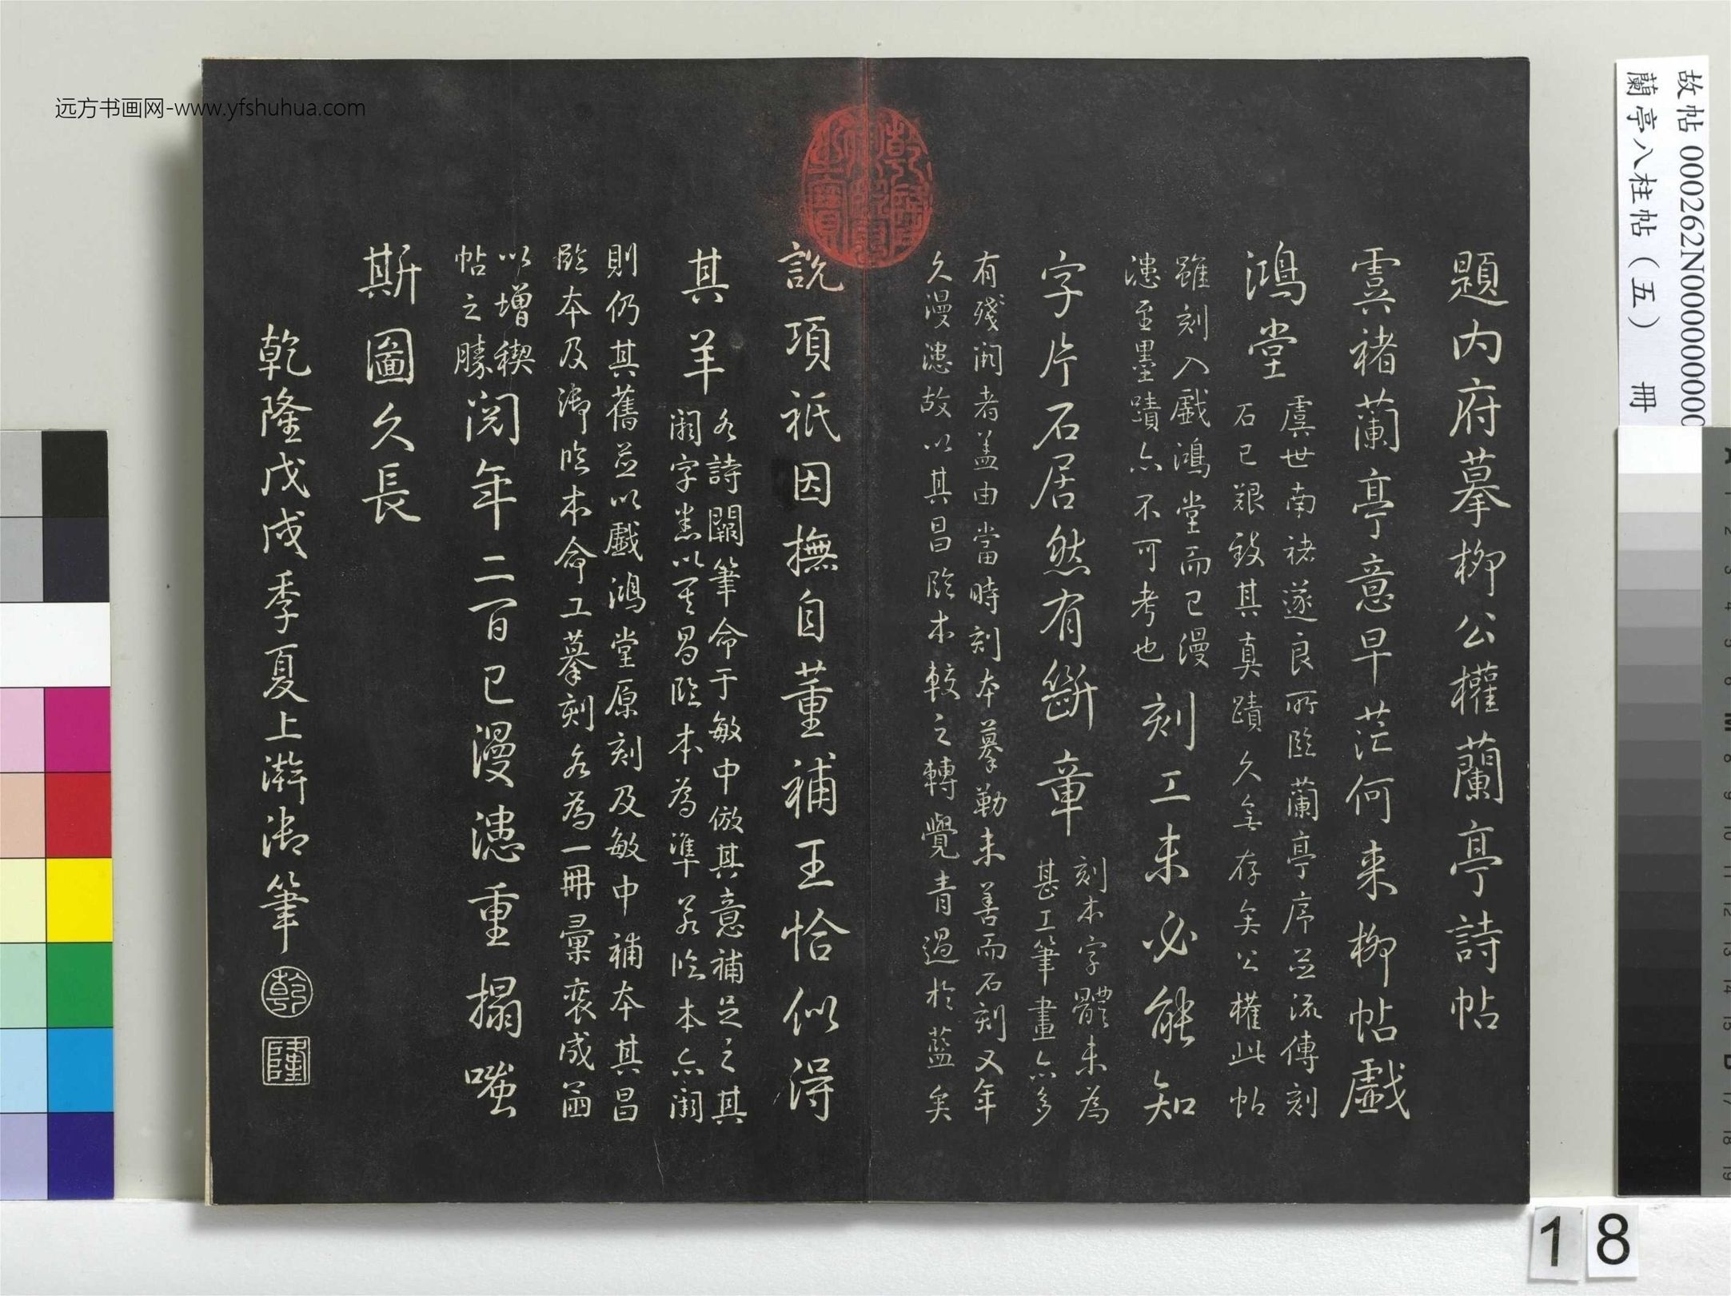 題内府摹柳公權蘭亭詩帖
虞褚蘭亭意早茫何来柳帖戲
鴻堂
虞世南褚遂良所臨蘭亭序並流傳刻
石已艱致其真蹟久無存矣公權此帖
雖刻入戲鴻堂而已漫
漶至墨蹟亦不可考也
刻工未必能知
字片石居然有斷章
刻本字體未為
甚工筆畫亦多
有殘闕者盖由當時刻本摹勒未善而石刻又年
久漫漶故以其昌臨本較之轉覺青過於藍矣
說項祇因撫自董補王恰似得
其羊
各詩闕筆命于敏中倣其意補足之其
闕字悉以其昌臨本為準若臨本亦闕
則仍其舊並以戲鴻堂原刻及敏中補本其昌
臨本及御臨本命工摹刻各為一冊彙裒成函
以增稧
帖之勝
閱年二百已漫漶重搨嗤
斯圖久長
乾隆戊戌季夏上澣御筆
乾
隆
故帖 000262N000000000
蘭亭八柱帖（五） 冊
18
远方书画网-www.yfshuhua.com